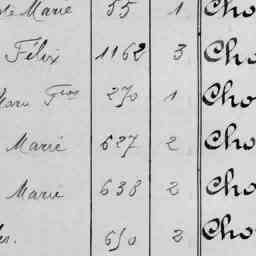 te Marie 55 1 Cho
Félix 1162 3 Cho
Marie Fçois 270 1 Cho
Marie 627 2 Cho
Marie 638 2 Cho
650 2 Cho